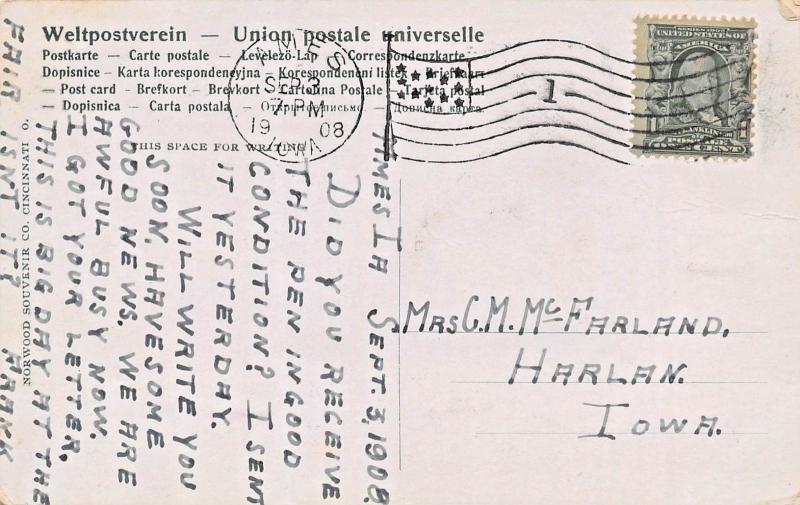 Weltpostverein — Union postale universelle
Postkarte — Carte postale — Levelező-Lap — Correspondenzkarte
Dopisnice - Karta korespondencyjna - Korespondenční lístek - Briefkaart
Post card - Brefkort - Brevkort - Cartolina Postale - Tarjeta postal
Dopisnica - Carta postala - Открытое письмо - Дописна карта
THIS SPACE FOR WRITING
NORWOOD SOUVENIR CO. CINCINNATI O.
AMES
SEP 3
7 PM
1908
IOWA
1
SERIES 1902
UNITED STATES OF
AMERICA
FRANKLIN
ONE CENT
AMES IA SEPT. 3, 1908.
DID YOU RECEIVE
THE PEN IN GOOD
CONDITION? I SENT
IT YESTERDAY.
WILL WRITE YOU
SOON, HAVE SOME
GOOD NEWS. WE ARE
AWFUL BUSY NOW.
I GOT YOUR LETTER.
THIS IS BIG DAY AT THE
FAIR ISNT IT?
MRS C. M. McFARLAND,
HARLAN.
IOWA.